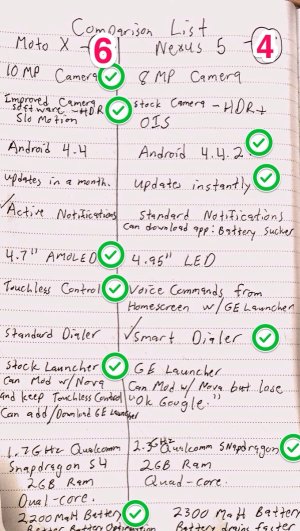 Comparison List
Moto X - 6 Nexus 5 - 4
10 MP Camera 8 MP Camera
Improved Camera Stock Camera - HDR+
software - HDR OIS
Slo Motion
Android 4.4 Android 4.4.2
updates in a month. Updates instantly
Active Notifications Standard Notifications
Can download app: Battery Sucker
4.7" AMOLED 4.95" LED
Touchless Control Voice Commands from
Homescreen w/ GE Launcher
Standard Dialer Smart Dialer
Stock Launcher GE Launcher
Can Mod w/ Nova Can Mod w/ Nova but lose
and keep Touchless Control "Ok Google."
Can add/Download GE Launcher
1.7GHz Qualcomm 2.3GHz Qualcomm Snapdragon
Snapdragon S4 2GB Ram
2GB Ram Quad-core.
Dual-core.
2200 MaH Battery 2300 MaH Battery
Better Battery Optimization Battery drains faster